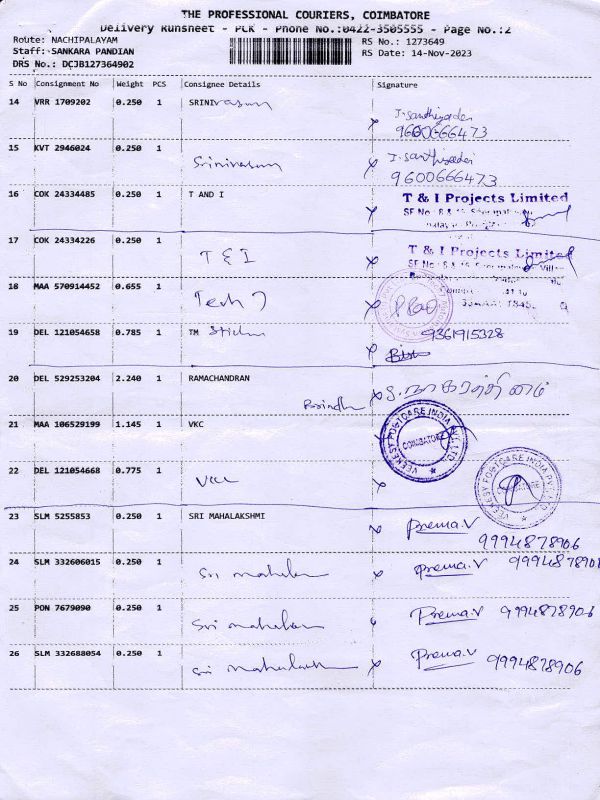 THE PROFESSIONAL COURIERS, COIMBATORE
Delivery Runsheet - PCR - Phone No.:0422-3505555 - Page No.:2
Route: NACHIPALAYAM
Staff: SANKARA PANDIAN
DRS No.: DCJB127364902
RS No.: 1273649
RS Date: 14-Nov-2023
S No Consignment No Weight PCS Consignee Details Signature
14 VRR 1709202 0.250 1 SRINIvasan
9600666473
15 KVT 2946024 0.250 1 Srinivasan
9600666473
16 COK 24334485 0.250 1 T AND I
T & I Projects Limited
17 COK 24334226 0.250 1 T & I
T & I Projects Limited
18 MAA 570914452 0.655 1 Tech 7
19 DEL 121054658 0.785 1 TM
9361915328
20 DEL 529253204 2.240 1 RAMACHANDRAN
21 MAA 106529199 1.145 1 VKC
VEEKESY POLYCARE INDIA PVT. LTD
COIMBATORE
22 DEL 121054668 0.775 1 VKC
VEEKESY POLYCARE INDIA PVT. LTD
23 SLM 5255853 0.250 1 SRI MAHALAKSHMI Prema.V
9994878906
24 SLM 332606015 0.250 1 Sri Prema.V 9994878906
25 PON 7679090 0.250 1 Sri Prema.V 9994878906
26 SLM 332688054 0.250 1 Sri Prema.V 9994878906